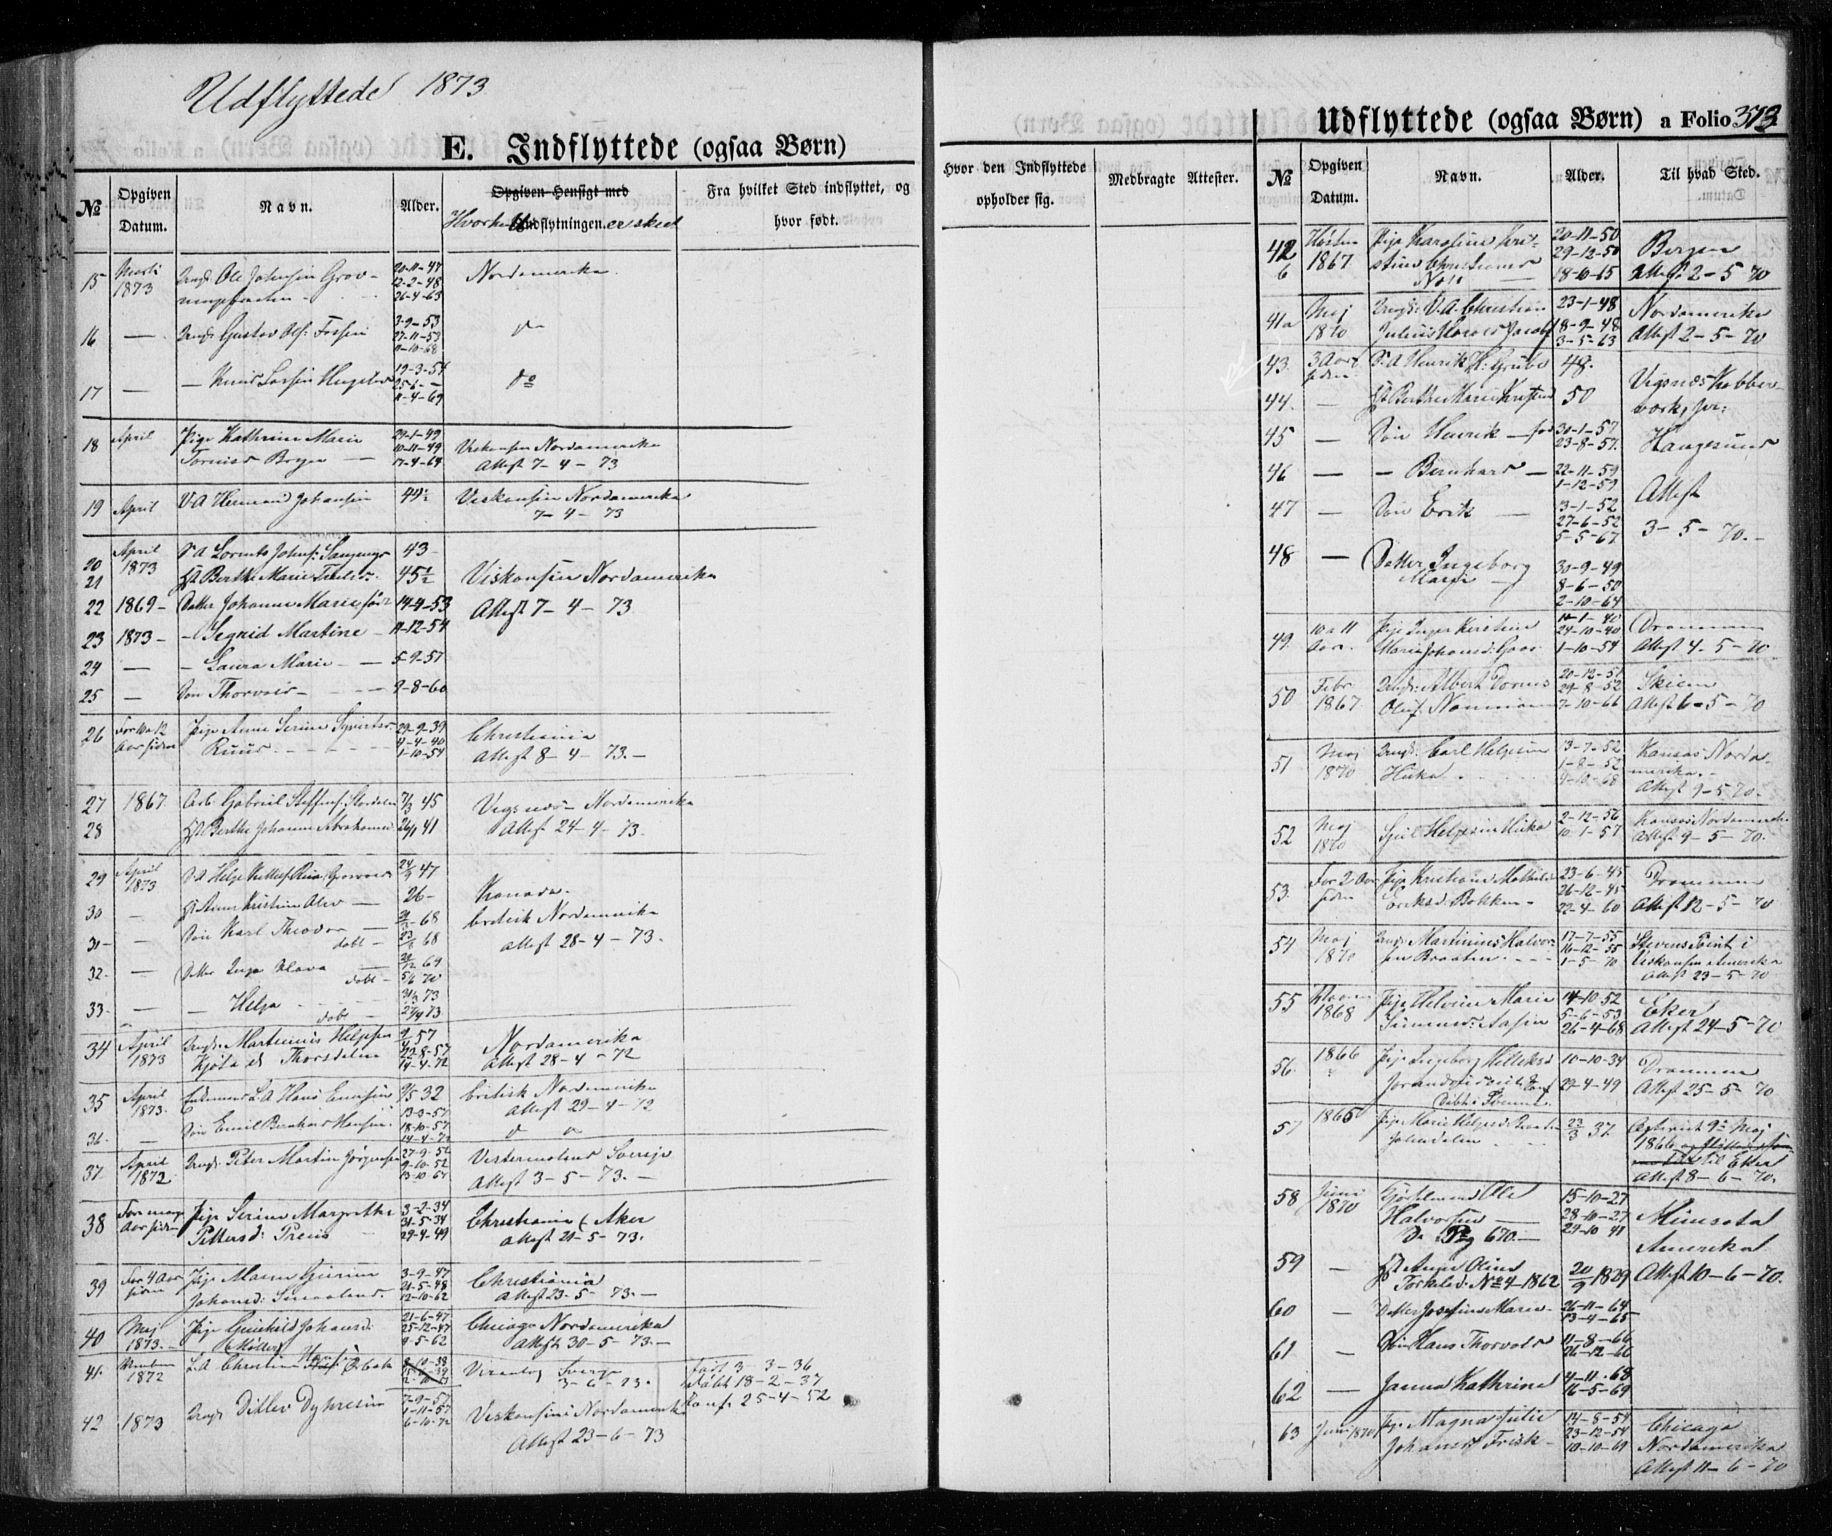 Udflyttede 1873
E. Indflyttede (ogsaa Børn)
№ Opgiven Datum. Navn. Alder. Opgiven Hensigt med Indflytningen er skeet Fra hvilket Sted indflyttet, og hvor født.
15 Marti 1873 Ungk Ole Johnsen 20-11-47 Nordamerika
12-2-48
26-4-63
16 — Ungk Gustav Ols: Fossen 3-9-53 do
27-11-53
11-10-68
17 — — Knud Larsen 19-3-54 do
25-6- —
11-4-69
18 April Pige Kathrine Marie 29-1-49 Viskonsin Nordamerika
10-11-49 Attest 7-4-73
17-4-64
19 April S A Herman Johansen 44½ Viskonsin Nordamerika
7-4-73
20 April 1873 S A Lorents Johns: 43
21 H Berthe Marie 45½ Viskonsin Nordamerika
22 1869 Datter Johanne Marie født 14-4-53 Attest 7-4-73
23 1873 — Segrid Martine — 11-12-54
24 — — Laura Marie — 5-9-57
25 — Søn Thorvald — 9-8-60
26 For 10 a 12 Aar siden Pige Anne Serine 29-9-39 Christiania
Ruud 4-4-40 Attest 8-4-73.
1-10-54
27 1867 Arb. Gabriel Steffens: 7/3 45 Vigsnæs Nordamerika
28 H Berthe Johanne Abrahamsd 26/1 41 Attest 24-4-73.
29 April 1873 S A Helge 24/9 47
30 — H Anne Kristine Olsd — 26 - Kanada
31 — Søn Karl Theodor — 68 britisk Nordamerika
døbt — 68 Attest 28-4-73.
32. — Datter Inga Klara 69
døbt — 5/6 70
33. — — Helga 31/3 73
døbt — 27/4 73
34 April 1873 Ungk: Martinius Helgesen 57 Nordamerika
Kjøla ed Thorsdalen 22-8-57 Attest 28-4-72
14-4-72
35 April 1873. S A Hans Enersen 9/5 32 britisk Nordamerika
Attest 29-4-72
36. — Søn Emil Bernhard Hansen 13-3-57 d o
18-10-57
14-4-72
37 April 1873 Ungk: Peter Martin Jørgensen 27-9-52 Sverige
9-10-52 Attest 3-5-73.
13-10-67
38 For mange Aar siden Pige Serine Margrethe 3-2-34 Christiania (Aker
Pettersd: 31-5-34 Attest 21-5-73.
29-4-49
39 For 4 Aar siden Pige Maren Gurine 3-9-47 Christiania
Johansd: 21-5-48 Attest 23-5-73.
12-10-62
40 Maj 1873. Pige Gunhild Johansd: 21-6-47 Chicago Nordamerika
(Møller) 25-12-47 Attest 30-5-73.
4-5-62
41. 1872 S A Christian Hansen 3-6-73. Født 3-3-36
Døbt 18-2-37
Konf 25-4-52
42 1873 Ungk Ditlev Dyhresen 7-9-57 Viskonsin i Nordamerika
1-11-57 Attest 23-6-73
6-10-72
Hvor den Indflyttede opholder sig. Medbragte Attester.
Udflyttede (ogsaa Børn) a Folio 373
№ Opgiven Datum. Navn. Alder. Til hvad Sted.
42 Høsten 1867 Pige Karoline Kristine 20-11-50 Bergen
b 29-12-50 Attest 2-5-70
18-10-65
41a Maj 1870 Ungk: V. A. Christian 23-1-48 Nordamerika
Julius 18-9-48 Attest 2-5-70
3-5-63
43. 3 Aar siden S A Henrik H: Grube 48. Vigsnæs Kobberværk, pr:
44. — H Berthe Marie 50 Haugesund
45 — Søn Henrik — født 30-1-57
23-8-57.
46 — — Bernhard — 22-11-59 Attest
1-12-59
47 — Søn Erik — 3-1-52 3-5-70.
27-6-52
5-5-67
48 — Datter Ingeborg 30-9-49
Marie 8-6-50
2-10-64
49. 10 a 11 Aar. Pige Inger Kirstine 10-1-40 Drammen
Marie Johansd: 24-10-40 Attest 4-5-70
1-10-54
50 Febr 1867 Ungk: Albert 20-12-51 Skien
Oluf Naumann 29-8-52 Attest 6-5-70
7-10-66
51 Maj 1870 Ungk: Carl Helgesen 3-7-52 Kansas Nordamerika.
Hicka 1-8-52 Attest 9-5-70.
4-10-68
52 Maj 1870 Helgesen Hicka 2-12-56 Kansas Nordamerik.
10-1-57 Attest 9-5-70.
53. For 2 Aar siden Pige Kristiane Mathilde 23-6-45 Drammen
Eriksd: Bakken 26-12-45 Attest 12-5-70
22-4-60
54 Maj 1870 Ungk: Martinius Halvorsen 17-7-55 Stevens Point i
Braaten 16-12-55 Viskonsin Amerika
1-5-70 Attest 23-5-70
55 1868 Pige Helvine Marie 14-10-52 Eker
5-6-53 Attest 24-5-70
26-4-68
56. 1866 Pige Ingeborg 10-10-34 Drammen
29-4-49 Attest 25-5-70
57 1865 Pige Marie Helgesd: 23/3 37. 9de Maj
1866 til Eker
Attest 8-6-70.
58 Juni 1870 Ole 15-10-27 Minesota
Halvorsen 28-10-27 Amerika
Pag 670. 29-10 41
59 — H Anne Oline 20/9 1829 Attest 10-6-70.
Torkelsd: No 4-1862
60 — Datter Josefine Marie 26-11-64
13-4-65
61 — Søn Hans Thorvald 11-8-66
26-12-66
62 — Janna Kathrine 4-11-68
16-5-69
63 Juni 1870 Pige Magna Julie 14-8-54 Chicago
Johansd: Frisk 23-12-54 Nordamerika
10-10-69 Attest 11-6-70